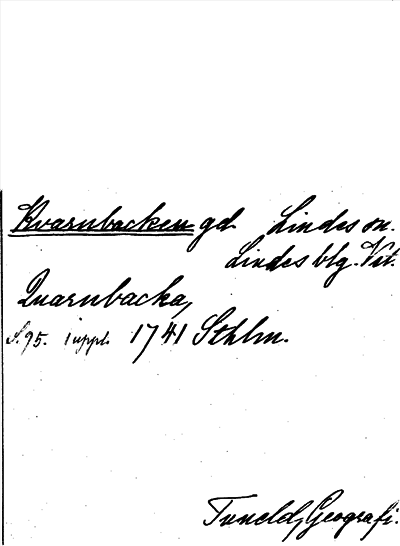 Kvarnbacken gd. Lindes sn.
Lindes blg. Vst.
Quarnbacka,
S. 95. i uppl. 1741 Sthlm.
Tuneld, Geografi.